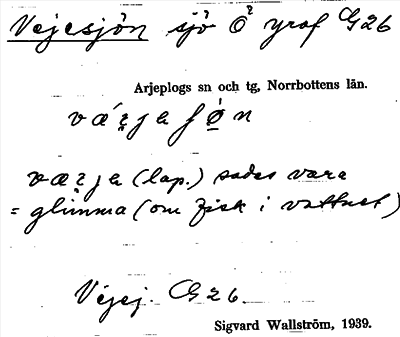 Vejesjön sjö Ö yraf G26
Arjeplogs sn och tg, Norrbottens län.
(lap.) sades vara
= glimma (om fisk i vattnet)
Vejej. G26
Sigvard Wallström, 1939.